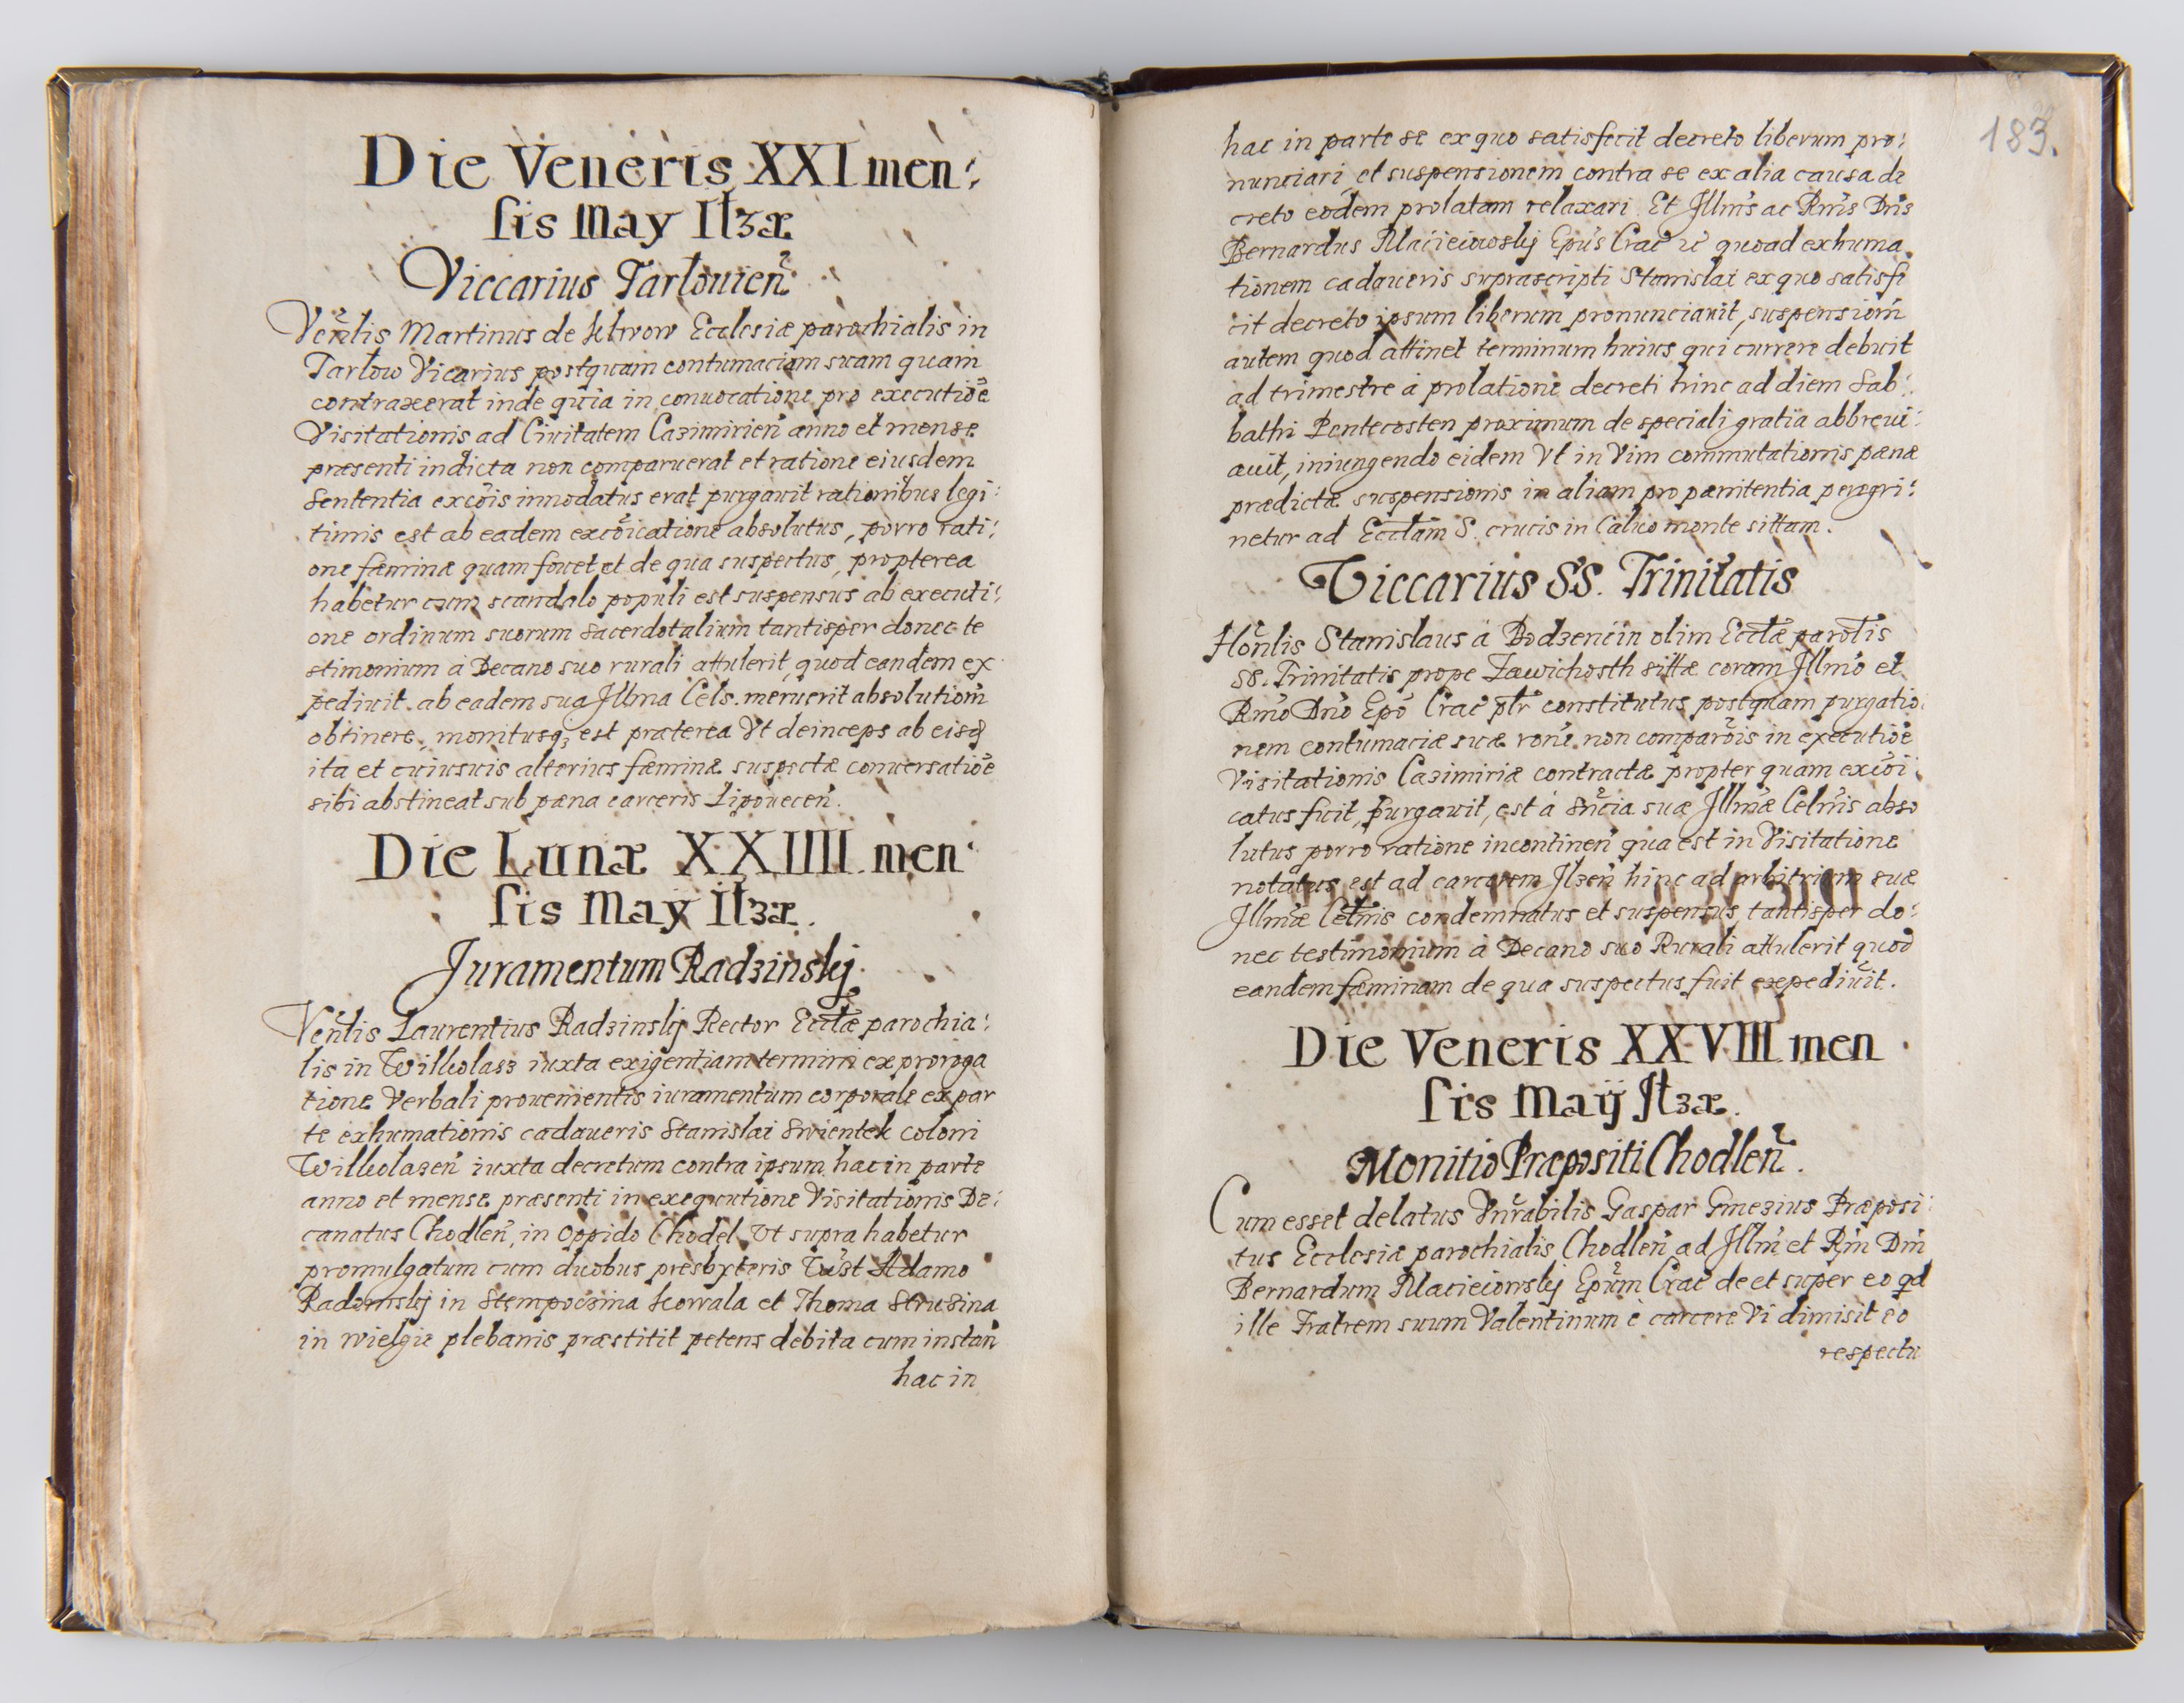 Die Veneris XXI men:
sis May Ilzæ
Viccarius Tarlouien̄
Veñlis Martinus de Klwow Ecclesiæ parochialis in
Tarlow Vicarius postquam contumaciam suam quam
contraxerat inde quia in conuocatione pro executiōe
Visitationis ad Ciuitatem Cazimirien̄ anno et mense
præsenti indicta non comparuerat et ratione eiusdem
sententia excōis innodatus erat purgauit rationibus legi:
timis est ab eadem excōicatione absolutus, porro rati:
one fæminæ quam fouet et de qua suspectus, propterea
habetur cum scandalo populi est suspensus ab executi:
one ordinum suorum sacerdotalium tantisper donec te
stimonium à Decano suo rurali attulerit, quod eandem ex
pediuit. ab eadem sua Illma Cels. meruerit absolutiom̄
obtinere, monitusq; est præterea Vt deinceps ab eisd̄
ita et cuiusuis alterius fæminæ suspectæ conuersatiōe
sibi abstineat sub pæna carceris Lipouecen̄.
Die Lunæ XXIIII. men:
sis May Ilzæ.
Juramentum Radzinskij
Veñlis Laurentius Radzinskij Rector Ecclæ parochia:
lis in Wilkolasz iuxta exigentiam termini ex proroga
tione Verbali prouenientis iuramentum corporale ex par
te exhumationis cadaueris Stanislai Swientek coloni
Wilkolazen̄ iuxta decretum contra ipsum hac in parte
anno et mense præsenti in exequutione Visitationis De:
canatus Chodlen̄, in Oppido Chodel Vt supra habetur
promulgatum cum duobus presbyteris Adamo
Radzinskij in Stempoczina Kowala et Thoma Struzina
in wielgie plebanis præstitit petens debita cum instan̄
hac in
183.
hac in parte se ex quo satisfecit decreto liberum pro:
nunciari, et suspensionem contra se ex alia causa de
creto eodem prolatam relaxari. Et Illm̄s ac Rm̄s Dn̄s
Bernardus Macieiowskij Epūs Crac̄ quoad exhuma
tionem cadaueris suprascripti Stanislai ex quo satisfe
cit decreto ipsum liberum pronunciauit, suspensiom̄
autem quod attinet terminum huius qui currere debuit
ad trimestre à prolatione decreti hinc ad diem Sab:
bathi Pentecosten proximum de speciali gratia abbreui:
auit, iniungendo eidem Vt in Vim commutationis pænæ
prædictæ suspensionis in aliam pro pænitentia peregri:
netur ad Ecclam S. crucis in Caluo monte sittam.
Viccarius SS. Trinitatis
Hoñlis Stanislaus à Bodzencin olim Ecclæ parotis
SS. Trinitatis prope Zawichosth sittæ coram Illm̄o et
Rm̄o Dn̄o Epō Crac̄ ptr̄ constitutus postquam purgatio
nem contumaciæ suæ rōne non comparōis in executiōe
Visitationis Cazimiriæ contractæ propter quam excōi
catus fuit, purgauit, est à sn̄cia suæ Illm̄æ Celn̄is abso
lutus porro ratione incontinen̄ qua est in Visitatione
notatus est ad carcerem Ilzen̄ hinc ad arbitrium suæ
Illm̄æ Celn̄is condemnatus et suspensus, tantisper do:
nec testimonium à Decano suo Rurali attulerit quod
eandem fæminam de qua suspectus fuit expediuit.
Die Veneris XXVIII men
sis Maij Ilzæ.
Monitio Præpositi Chodlen̄.
Cum esset delatus Vnrabilis Gaspar Gnezius Præposi:
tus Ecclesiæ parochialis Chodlen̄ ad Illm̄ et Rm̄ Dm̄
Bernardum Macieiowskij Epum̄ Crac̄ de et super eo qd
ille Fratrem suum Valentinum è carcere Vi dimisit eo
respectu